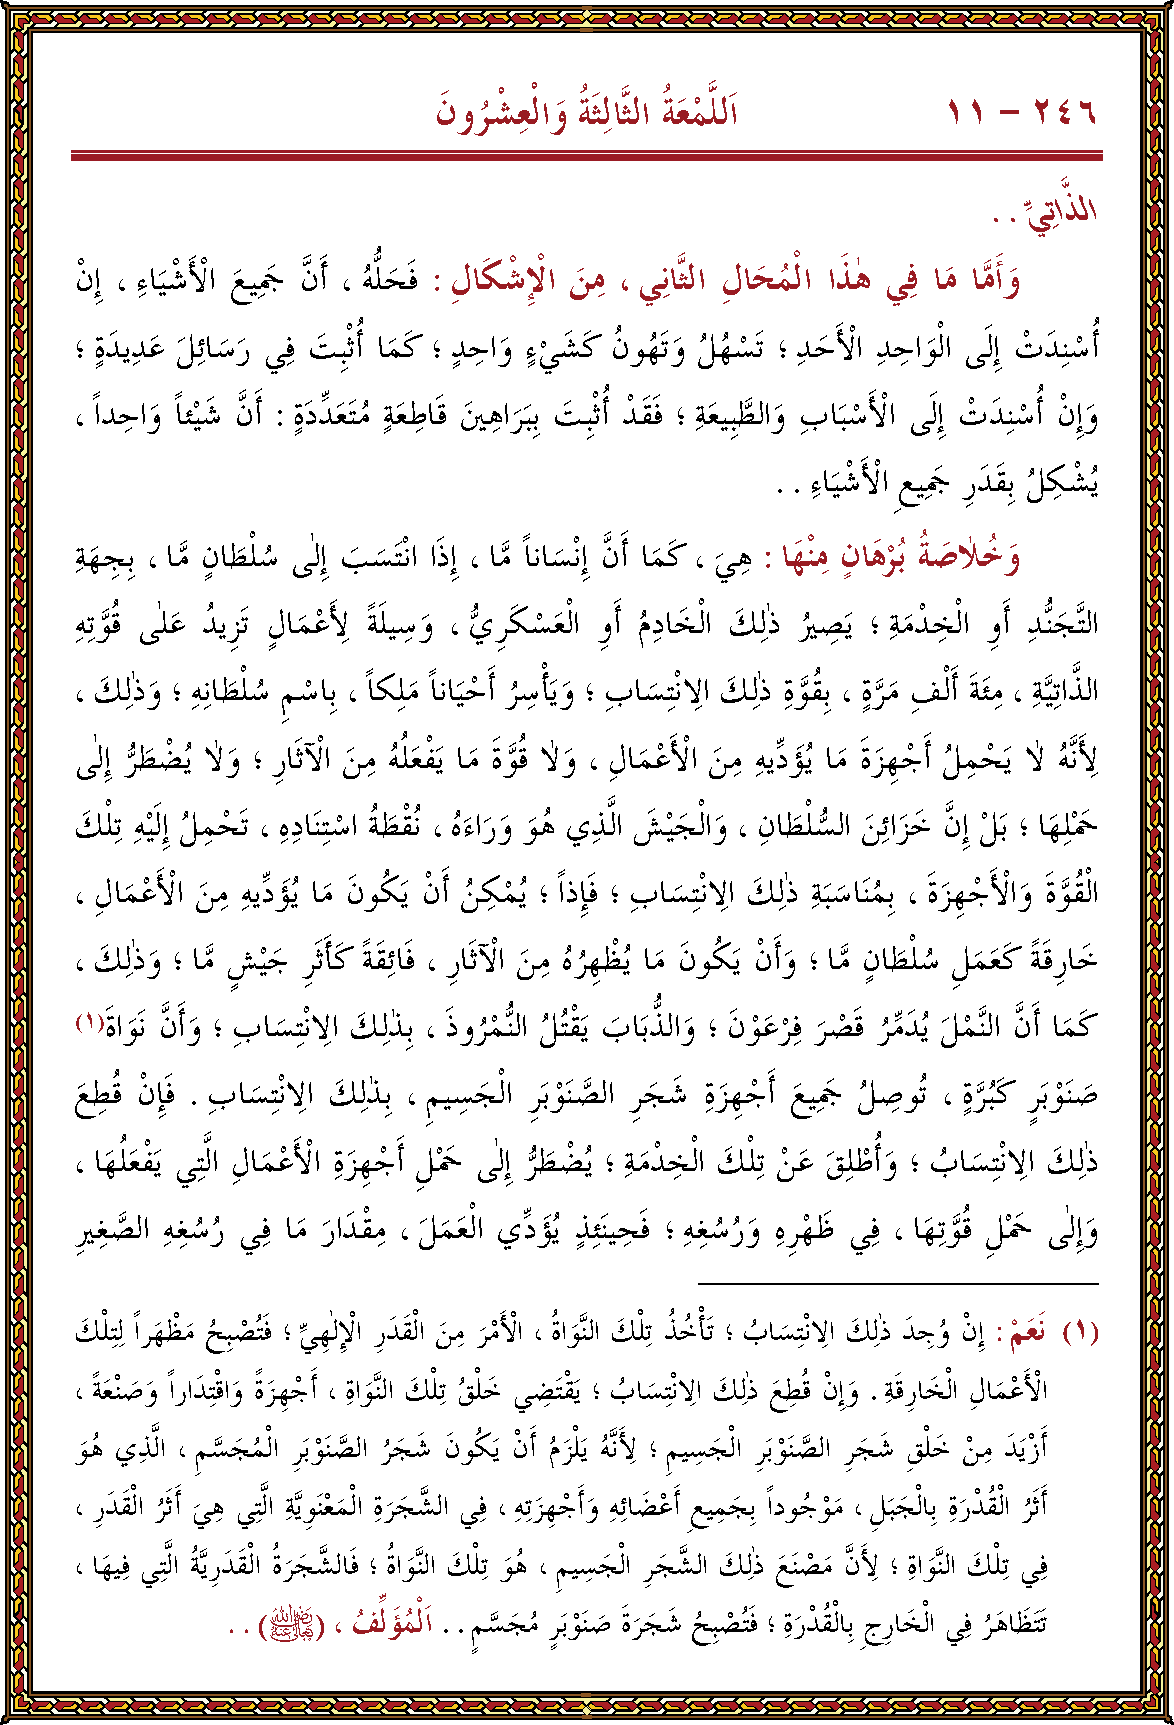 ٢٤٦ – ١١ اَللَّمْعَةُ الثَّالِثَةُ وَالْعِشْرُونَ
الذَّاتِيِّ . .
وَأَمَّا مَا فِي هٰذَا الْمُحَالِ الثَّانِي ، مِنَ الْإِشْكَالِ : فَحَلُّهُ ، أَنَّ جَمِيعَ الْأَشْيَاءِ ، إِنْ
أُسْنِدَتْ إِلَى الْوَاحِدِ الْأَحَدِ ؛ تَسْهُلُ وَتَهُونُ كَشَيْءٍ وَاحِدٍ ؛ كَمَا أُثْبِتَ فِي رَسَائِلَ عَدِيدَةٍ ؛
وَإِنْ أُسْنِدَتْ إِلَى الْأَسْبَابِ وَالطَّبِيعَةِ ؛ فَقَدْ أُثْبِتَ بِبَرَاهِينَ قَاطِعَةٍ مُتَعَدِّدَةٍ : أَنَّ شَيْئاً وَاحِداً ،
يُشْكِلُ بِقَدَرِ جَمِيعِ الْأَشْيَاءِ . .
وَخُلَاصَةُ بُرْهَانٍ مِنْهَا : هِيَ ، كَمَا أَنَّ إِنْسَاناً مَّا ، إِذَا انْتَسَبَ إِلٰى سُلْطَانٍ مَّا ، بِجِهَةِ
التَّجَنُّدِ أَوِ الْخِدْمَةِ ؛ يَصِيرُ ذٰلِكَ الْخَادِمُ أَوِ الْعَسْكَرِيُّ ، وَسِيلَةً لِأَعْمَالٍ تَزِيدُ عَلٰى قُوَّتِهِ
الذَّاتِيَّةِ ، مِئَةَ أَلْفِ مَرَّةٍ ، بِقُوَّةِ ذٰلِكَ الِانْتِسَابِ ؛ وَيَأْسِرُ أَحْيَاناً مَلِكاً ، بِاسْمِ سُلْطَانِهِ ؛ وَذٰلِكَ ،
لِأَنَّهُ لَا يَحْمِلُ أَجْهِزَةَ مَا يُؤَدِّيهِ مِنَ الْأَعْمَالِ ، وَلَا قُوَّةَ مَا يَفْعَلُهُ مِنَ الْآثَارِ ؛ وَلَا يُضْطَرُّ إِلٰى
حَمْلِهَا ؛ بَلْ إِنَّ خَزَائِنَ السُّلْطَانِ ، وَالْجَيْشَ الَّذِي هُوَ وَرَاءَهُ ، نُقْطَةُ اسْتِنَادِهِ ، تَحْمِلُ إِلَيْهِ تِلْكَ
الْقُوَّةَ وَالْأَجْهِزَةَ ، بِمُنَاسَبَةِ ذٰلِكَ الِانْتِسَابِ ؛ فَإِذاً ؛ يُمْكِنُ أَنْ يَكُونَ مَا يُؤَدِّيهِ مِنَ الْأَعْمَالِ ،
خَارِقَةً كَعَمَلِ سُلْطَانٍ مَّا ؛ وَأَنْ يَكُونَ مَا يُظْهِرُهُ مِنَ الْآثَارِ ، فَائِقَةً كَأَثَرِ جَيْشٍ مَّا ؛ وَذٰلِكَ ،
كَمَا أَنَّ النَّمْلَ يُدَمِّرُ قَصْرَ فِرْعَوْنَ ؛ وَالذُّبَابَ يَقْتُلُ النُّمْرُوذَ ، بِذٰلِكَ الِانْتِسَابِ ؛ وَأَنَّ نَوَاةَ(١)
صَنَوْبَرٍ كَبُرَّةٍ ، تُوصِلُ جَمِيعَ أَجْهِزَةِ شَجَرِ الصَّنَوْبَرِ الْجَسِيمِ ، بِذٰلِكَ الِانْتِسَابِ . فَإِنْ قُطِعَ
ذٰلِكَ الِانْتِسَابُ ؛ وَأُطْلِقَ عَنْ تِلْكَ الْخِدْمَةِ ؛ يُضْطَرُّ إِلٰى حَمْلِ أَجْهِزَةِ الْأَعْمَالِ الَّتِي يَفْعَلُهَا ،
وَإِلٰى حَمْلِ قُوَّتِهَا ، فِي ظَهْرِهِ وَرُسُغِهِ ؛ فَحِينَئِذٍ يُؤَدِّي الْعَمَلَ ، مِقْدَارَ مَا فِي رُسُغِهِ الصَّغِيرِ
(١) نَعَمْ : إِنْ وُجِدَ ذٰلِكَ الِانْتِسَابُ ؛ تَأْخُذُ تِلْكَ النَّوَاةُ ، الْأَمْرَ مِنَ الْقَدَرِ الْإِلٰهِيِّ ؛ فَتُصْبِحُ مَظْهَراً لِتِلْكَ
الْأَعْمَالِ الْخَارِقَةِ . وَإِنْ قُطِعَ ذٰلِكَ الِانْتِسَابُ ؛ يَقْتَضِي خَلْقُ تِلْكَ النَّوَاةِ ، أَجْهِزَةً وَاقْتِدَاراً وَصَنْعَةً ،
أَزْيَدَ مِنْ خَلْقِ شَجَرِ الصَّنَوْبَرِ الْجَسِيمِ ؛ لِأَنَّهُ يَلْزَمُ أَنْ يَكُونَ شَجَرُ الصَّنَوْبَرِ الْمُجَسَّمِ ، الَّذِي هُوَ
أَثَرُ الْقُدْرَةِ بِالْجَبَلِ ، مَوْجُوداً بِجَمِيعِ أَعْضَائِهِ وَأَجْهِزَتِهِ ، فِي الشَّجَرَةِ الْمَعْنَوِيَّةِ الَّتِي هِيَ أَثَرُ الْقَدَرِ ،
فِي تِلْكَ النَّوَاةِ ؛ لِأَنَّ مَصْنَعَ ذٰلِكَ الشَّجَرِ الْجَسِيمِ ، هُوَ تِلْكَ النَّوَاةُ ؛ فَالشَّجَرَةُ الْقَدَرِيَّةُ الَّتِي فِيهَا ،
تَتَظَاهَرُ فِي الْخَارِجِ بِالْقُدْرَةِ ؛ فَتُصْبِحُ شَجَرَةَ صَنَوْبَرٍ مُجَسَّمٍ . . اَلْمُؤَلِّفُ ، (رَضِيَ اللهُ تَعَالَى عَنْهُ) . .